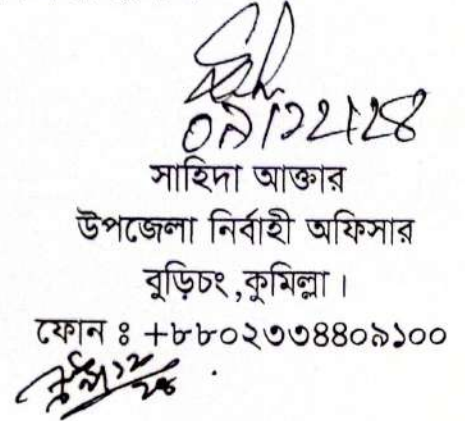 ০৯/১২/২৪
সাহিদা আক্তার
উপজেলা নির্বাহী অফিসার
বুড়িচং ,কুমিল্লা ।
ফোন ঃ +৮৮০২৩৩৪৪০৯১০০